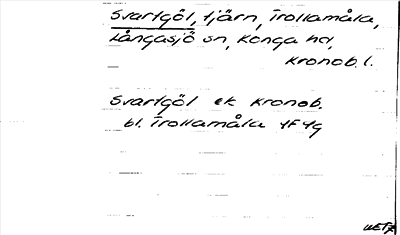 Svartgöl, tjärn, Trollamåla,
Långasjö sn, Konga hd,
Kronob. l.
Svartgöl ek Kronob.
bl. Trollamåla 4F4g